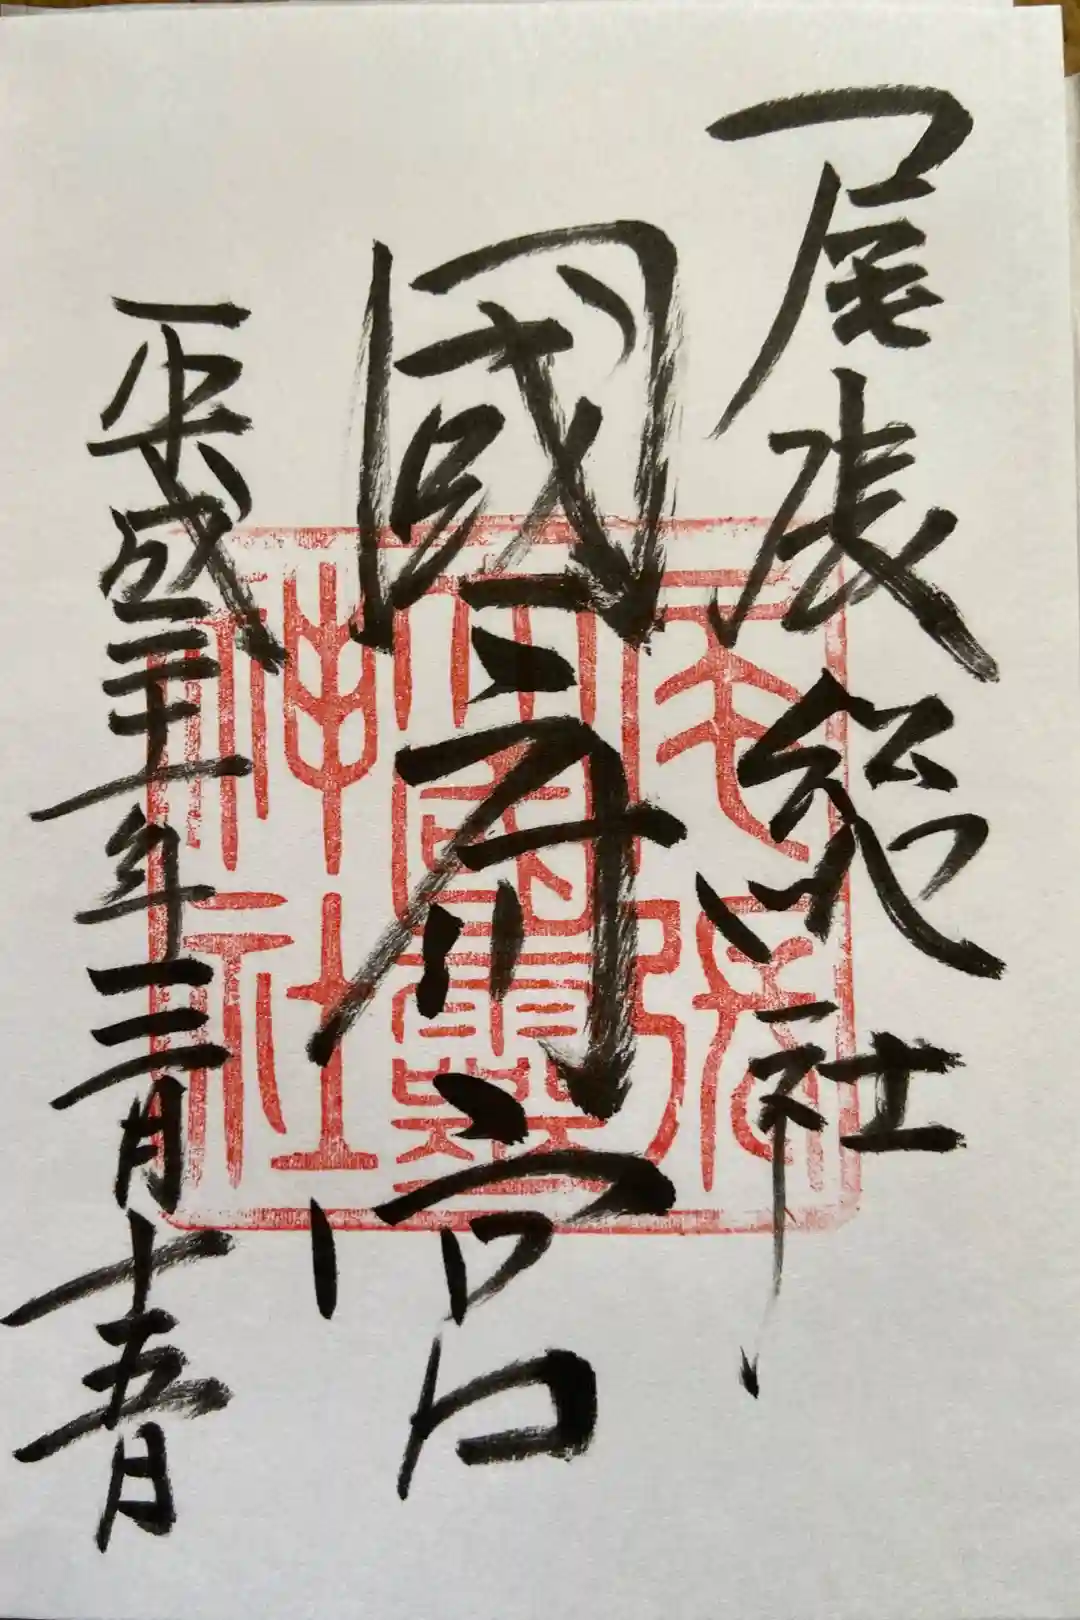 尾張総社
國府宮
平成三十一年三月十五日
尾張
大國靈
神社